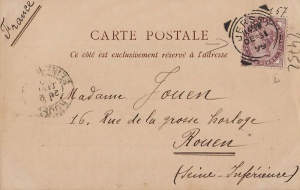 France
CARTE POSTALE
Ce côté est exclusivement réservé à l'adresse
JERSEY
Madame Jouen
16, Rue de la grosse horloge
Rouen
(Seine-Inférieure)